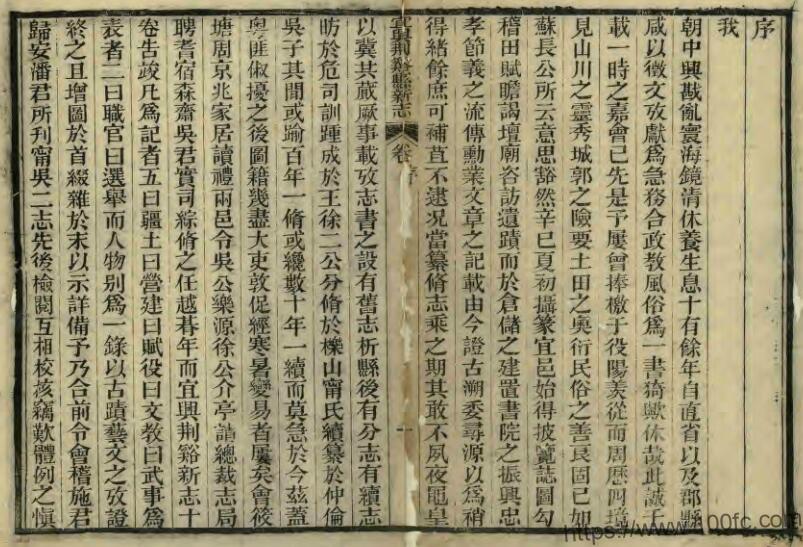 序
我
朝中興戡亂寰海鏡清休養生息十有餘年自直省以及郡縣
咸以徵文攷獻爲急務合政敎風俗爲一書猗歟休哉此誠千
載一時之嘉會已先是予屢曾捧檄于役陽羨從而周歷四境
見山川之靈秀城郭之險要土田之奥衍民俗之善良固已如
蘇長公所云意思豁然辛巳夏初攝篆宜邑始得披覽誌圖勾
稽田賦瞻謁壇廟咨訪遺蹟而於倉儲之建置書院之振興忠
孝節義之流傳勳業文章之記載由今證古溯委尋源以爲稍
得緒餘庶可補苴不逮況當纂脩志乘之期其敢不夙夜黽皇
宜興荆谿縣新志
卷
序
一
以冀其蕆厥事載攷志書之設有舊志析縣後有分志有續志
昉於危司訓踵成於王徐二公分脩於櫟山甯氏續纂於仲倫
吳子其閒或踰百年一脩或纔數十年一續而莫急於今茲蓋
粤匪俶擾之後圖籍幾盡大吏敦促經寒暑變易者屢矣會筱
塘周京兆家居讀禮兩邑令吳公樂源徐公介亭請總裁志局
聘耆宿森齋吳君實司綜脩之任越朞年而宜興荆谿新志十
卷告竣凡爲記者五曰疆土曰營建曰賦役曰文敎曰武事爲
表者二曰職官曰選舉而人物别爲一錄以古蹟藝文之攷證
終之且增圖於首綴雜於末以示詳備予乃合前令會稽施君
歸安潘君所刋甯吳二志先後檢閱互相校核竊歎體例之慎
https://www.100fc.com